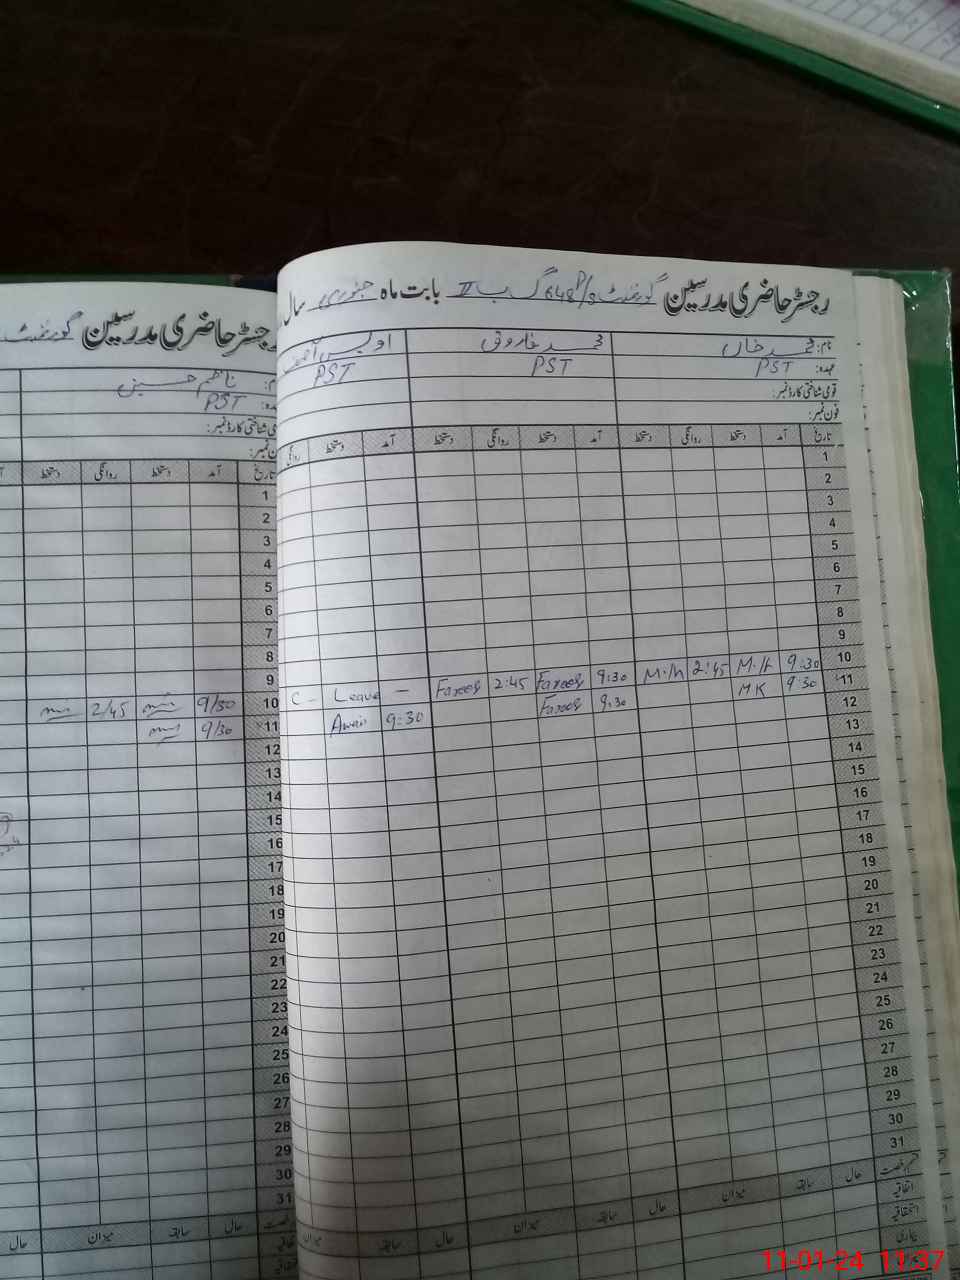 رجسٹر حاضری مدرسین گورنمنٹ P/S 648 گ ب II بابت ماہ جنوری سال
نام: محمد خان محمد فاروق اویس آصف
عہدہ: PST PST PST
قومی شناختی کارڈ نمبر:
فون نمبر:
تاریخ آمد دستخط روانگی دستخط آمد دستخط روانگی دستخط آمد دستخط روانگی
1
2
3
4
5
6
7
8
9
10 9:30 M.K 2:45 M.K 9:30 Farooq 2:45 Farooq — Leave C-
11 9:30 MK 9:30 Farooq 9:30 Awais
12
13
14
15
16
17
18
19
20
21
22
23
24
25
26
27
28
29
30
31
قسم رخصت حال سابقہ میزان حال سابقہ میزان حال سابقہ میزان
اتفاقیہ
استحقاقیہ
بیماری
رجسٹر حاضری مدرسین گورنمنٹ
نام: ناظم حسین
عہدہ: PST
قومی شناختی کارڈ نمبر:
فون نمبر:
تاریخ آمد دستخط روانگی دستخط
1
2
3
4
5
6
7
8
9
10 9/30 2/45
11 9/30
12
13
14
15
16
17
18
19
20
21
22
23
24
25
26
27
28
29
30
31
حال سابقہ میزان حال
11-01-24 11:37